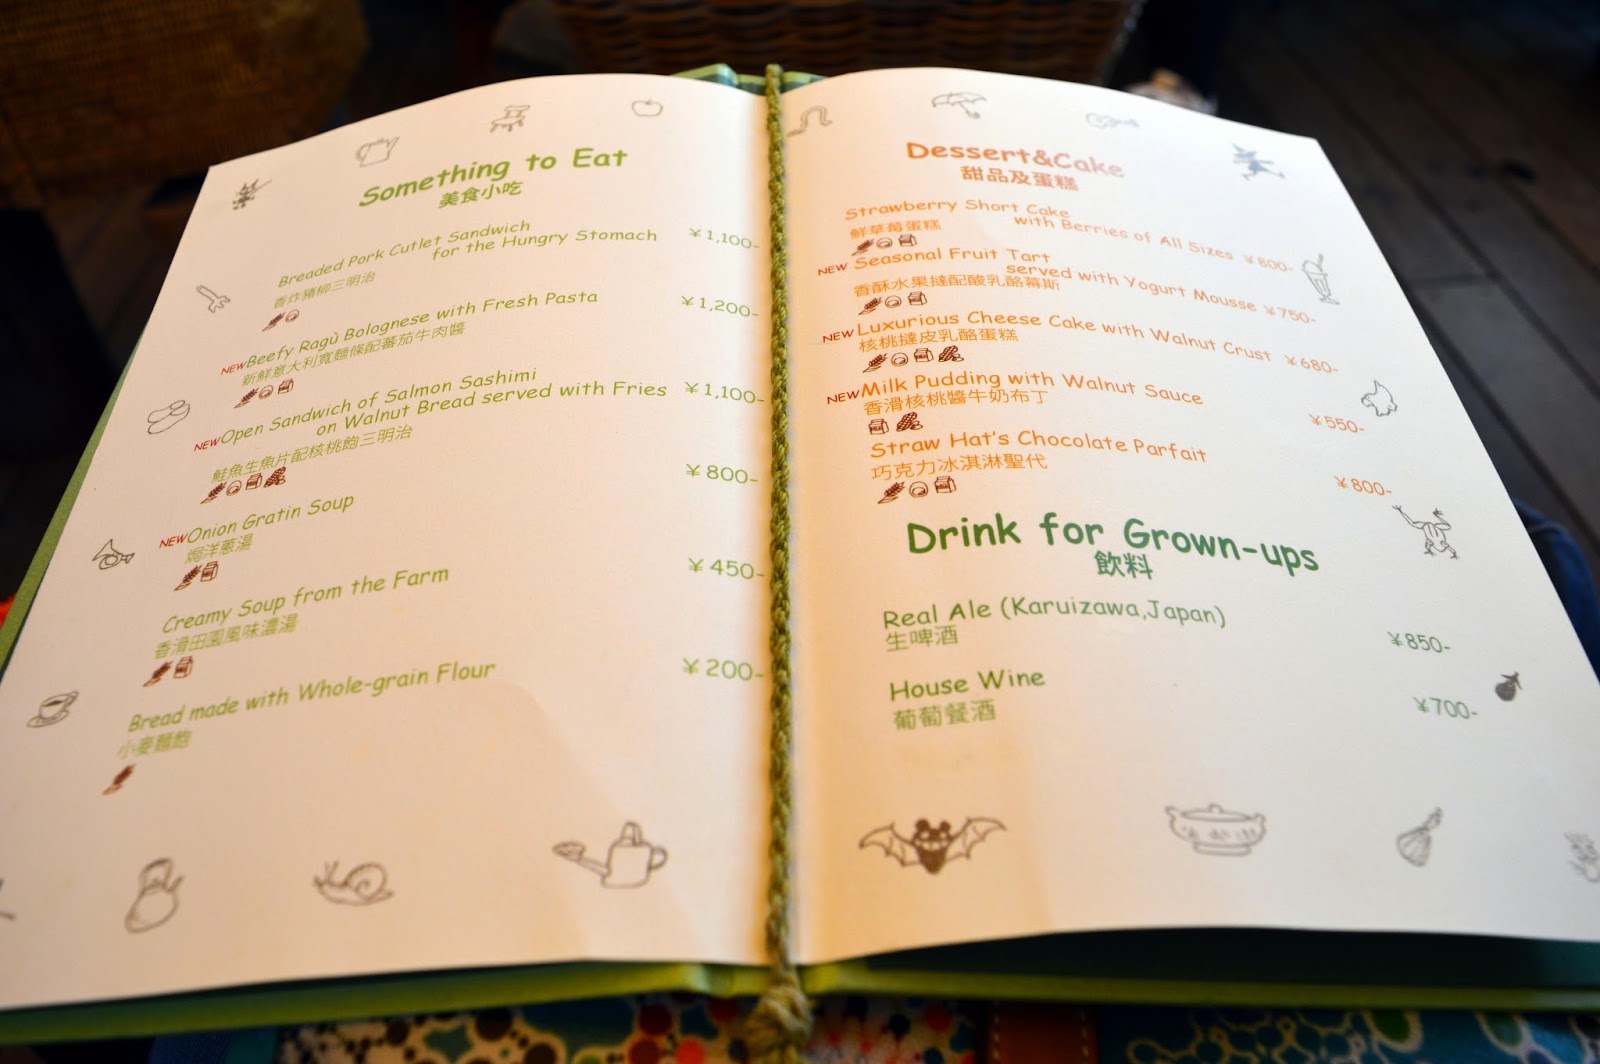 Something to Eat
美食小吃
Breaded Pork Cutlet Sandwich
for the Hungry Stomach ¥1,100-
香炸豬柳三明治
NEW Beefy Ragù Bolognese with Fresh Pasta ¥1,200-
新鮮意大利寬麵條配蕃茄牛肉醬
NEW Open Sandwich of Salmon Sashimi
on Walnut Bread served with Fries ¥1,100-
鮭魚生魚片配核桃飽三明治
NEW Onion Gratin Soup ¥800-
焗洋蔥湯
Creamy Soup from the Farm ¥450-
香滑田園風味濃湯
Bread made with Whole-grain Flour ¥200-
小麥麵飽
Dessert&Cake
甜品及蛋糕
Strawberry Short Cake
with Berries of All Sizes ¥800-
鮮草莓蛋糕
NEW Seasonal Fruit Tart
served with Yogurt Mousse ¥750-
香酥水果撻配酸乳酪幕斯
NEW Luxurious Cheese Cake with Walnut Crust ¥680-
核桃撻皮乳酪蛋糕
NEW Milk Pudding with Walnut Sauce ¥550-
香滑核桃醬牛奶布丁
Straw Hat's Chocolate Parfait ¥800-
巧克力冰淇淋聖代
Drink for Grown-ups
飲料
Real Ale (Karuizawa,Japan) ¥850-
生啤酒
House Wine ¥700-
葡萄餐酒